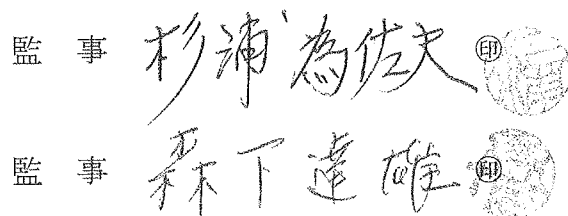 監事 杉浦為佐夫 ㊞
監事 森下達雄 ㊞